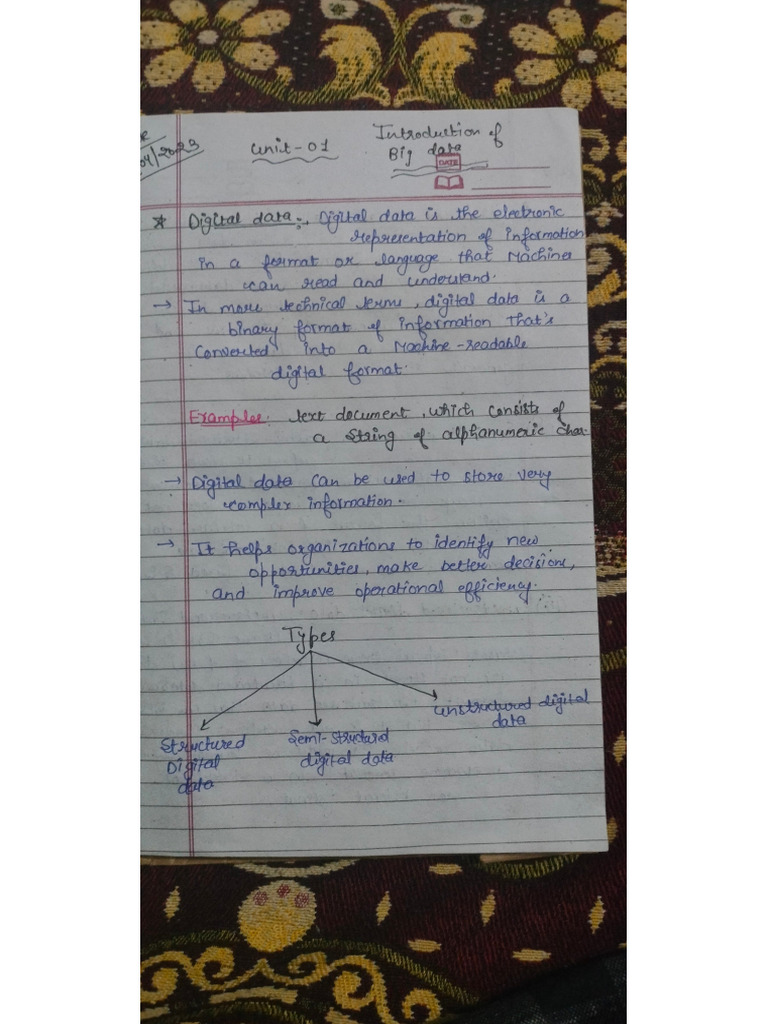 04/2023
Unit-01
Introduction of
Big data
DATE
* Digital data:- Digital data is the electronic
representation of information
in a format or language that Machines
can read and understand.
→ In more technical terms, digital data is a
binary format of information that's
Converted into a Machine-readable
digital format.
Examples: text document, which consists of
a string of alphanumeric char.
→ Digital data can be used to store very
complex information.
→ It helps organizations to identify new
opportunities, make better decisions,
and improve operational efficiency.
Types
Structured
Digital
data
Semi-structured
digital data
unstructured digital
data